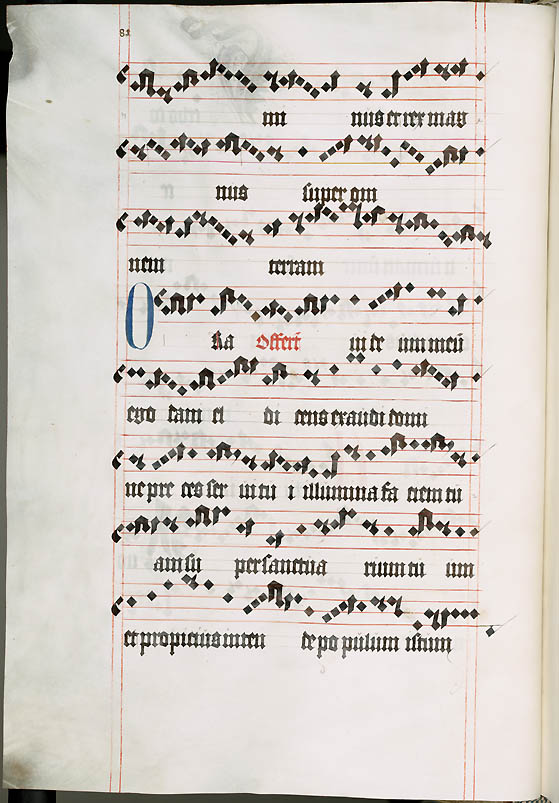 82
mi nus et rex mag
nus super om
nem terram
O Ra Offert in de um meū
ego dani el di cens exaudi domi
ne pre ces ser ui tu i illumina fa ciem tu
am su per sanctua rium tu um
et propicius inten de po pulum istum